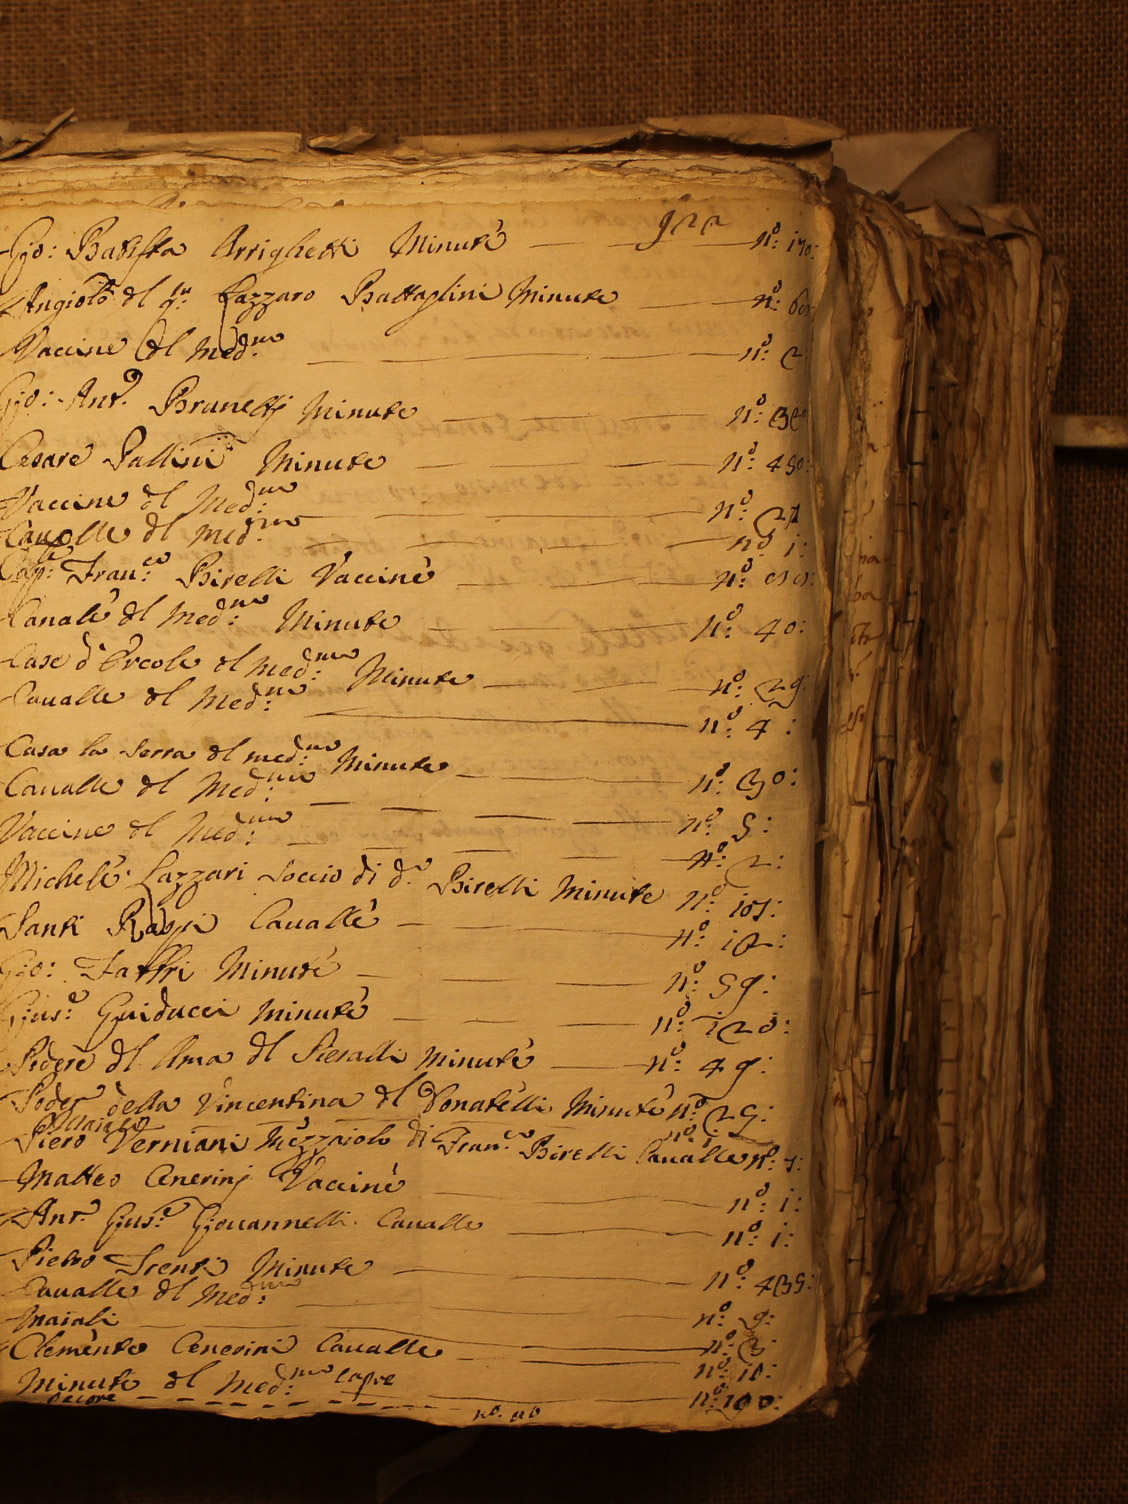 Gio: Batista Arrighetti Minute n.o 170:
Angiolo del q.m Lazzaro Battaglini Minute n.o
Vaccine del Med.mo n.o 2
Gio: Ant.o Brunetti Minute n.o
Cesare Pallini Minute n.o 450:
Vaccine del Med.mo n.o 21
Cavalle del med.mo n.o 1:
Cap: Fran.co Birelli Vaccine n.o
Canale del Med.mo Minute n.o 40:
Case d'Ercole del med.mo Minute n.o 29:
Cavalle del Med.mo n.o 4:
Casa la Serra del med.mo Minute n.o 30:
Cavalle del Med.mo n.o 5:
Vaccine del Med.mo n.o 2:
Michele Lazzari Soccio di d.o Birelli Minute n.o 105:
Santi Cavalle n.o 12:
Gio: Minute n.o 59:
Gius.e Guiducci minute n.o 120:
Podere del Ama del Pieralli minute n.o 49:
Poder della Vincentina del Donatelli Minute n.o 25:
Maiali n.o
Piero Verniani Mezzaiolo di Fran.co Birelli Cavalle n.o 1:
Matteo Cenerinj Vaccine n.o 1:
Ant.o Gius.e Giovannelli Cavalle n.o 1:
Pietro Minute n.o 435:
Cavalle del Med.mo n.o 9:
Maiali n.o 3:
Clemente Cenerini Cavalle n.o 10:
Minute del Med.mo capre n.o 190:
Pecore n.o